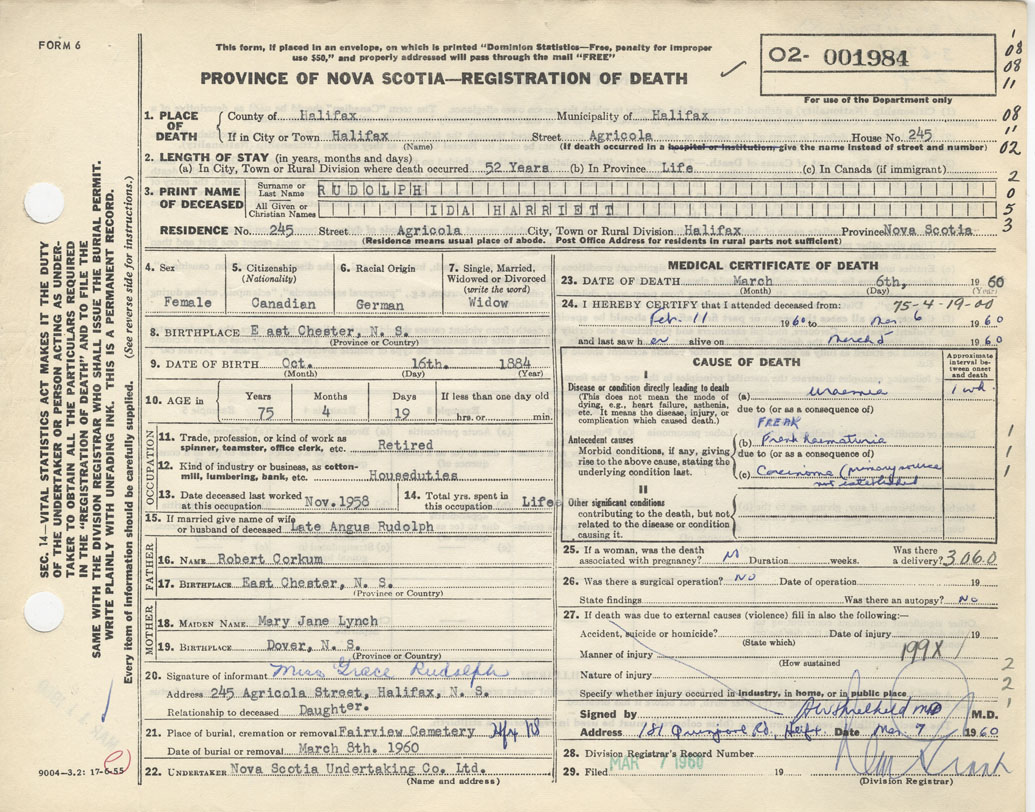 FORM 6
This form, if placed in an envelope, on which is printed "Dominion Statistics—Free, penalty for improper
use $50," and properly addressed will pass through the mail "FREE"
PROVINCE OF NOVA SCOTIA—REGISTRATION OF DEATH
02- 001984
For use of the Department only
1. PLACE OF DEATH County of Halifax Municipality of Halifax
If in City or Town Halifax Street Agricola House No. 245
(Name) (If death occurred in a hospital or institution, give the name instead of street and number)
2. LENGTH OF STAY (in years, months and days)
(a) In City, Town or Rural Division where death occurred 52 Years (b) In Province Life (c) In Canada (if immigrant)
3. PRINT NAME OF DECEASED Surname or Last Name RUDOLPH
All Given or Christian Names IDA HARRIETT
RESIDENCE No. 245 Street Agricola City, Town or Rural Division Halifax Province Nova Scotia
(Residence means usual place of abode. Post Office Address for residents in rural parts not sufficient)
4. Sex 5. Citizenship (Nationality) 6. Racial Origin 7. Single, Married, Widowed or Divorced (write the word)
Female Canadian German Widow
8. BIRTHPLACE East Chester, N. S.
(Province or Country)
9. DATE OF BIRTH Oct. 16th. 1884
(Month) (Day) (Year)
10. AGE in Years Months Days If less than one day
75 4 19 hrs. or min.
OCCUPATION
11. Trade, profession, or kind of work as spinner, teamster, office clerk, etc. Retired
12. Kind of industry or business, as cotton-mill, lumbering, bank, etc. Houseduties
13. Date deceased last worked at this occupation Nov. 1958 14. Total yrs. spent in this occupation Life
15. If married give name of wife or husband of deceased Late Angus Rudolph
FATHER
16. NAME Robert Corkum
17. BIRTHPLACE East Chester, N. S.
(Province or Country)
MOTHER
18. MAIDEN NAME Mary Jane Lynch
19. BIRTHPLACE Dover, N. S.
(Province or Country)
20. Signature of informant Miss Grace Rudolph
Address 245 Agricola Street, Halifax, N. S.
Relationship to deceased Daughter.
21. Place of burial, cremation or removal Fairview Cemetery
Date of burial or removal March 8th. 1960
22. UNDERTAKER Nova Scotia Undertaking Co. Ltd.
(Name and address)
MEDICAL CERTIFICATE OF DEATH
23. DATE OF DEATH March 6th, 1960
(Month) (Day) (Year)
75-4-19-00
24. I HEREBY CERTIFY that I attended deceased from:
Feb. 11 1960 to Mar 6 1960
and last saw her alive on March 5 1960
CAUSE OF DEATH
Approximate interval between onset and death
I
Disease or condition directly leading to death
(This does not mean the mode of dying, e.g., heart failure, asthenia, etc. It means the disease, injury, or complication which caused death.)
(a) Uraemia 1 wk.
due to (or as a consequence of)
FREAK
Antecedent causes
Morbid conditions, if any, giving rise to the above cause, stating the underlying condition last.
(b) Frank haematuria
due to (or as a consequence of)
(c) Carcinoma (primary source
not established
II
Other significant conditions
contributing to the death, but not related to the disease or condition causing it.
25. If a woman, was the death associated with pregnancy? No Duration weeks. Was there a delivery? 3060
26. Was there a surgical operation? No Date of operation 19
State findings Was there an autopsy? No
27. If death was due to external causes (violence) fill in also the following:—
Accident, suicide or homicide? Date of injury 19
(State which)
Manner of injury 199X
(How sustained
Nature of injury
Specify whether injury occurred in industry, in home, or in public place
Signed by M.D.
Address Date Mar. 7 1960
28. Division Registrar's Record Number
29. Filed MAR 7 1960 19
(Division Registrar)
SEC. 14—VITAL STATISTICS ACT MAKES IT THE DUTY
OF THE UNDERTAKER OR PERSON ACTING AS UNDER-
TAKER TO OBTAIN ALL THE PARTICULARS REQUIRED
IN THE "REGISTRATION OF DEATH" AND TO FILE THE
SAME WITH THE DIVISION REGISTRAR WHO SHALL ISSUE THE BURIAL PERMIT.
WRITE PLAINLY WITH UNFADING INK. THIS IS A PERMANENT RECORD.
Every item of information should be carefully supplied. (See reverse side for instructions.)
9004—3.2: 17-6-55